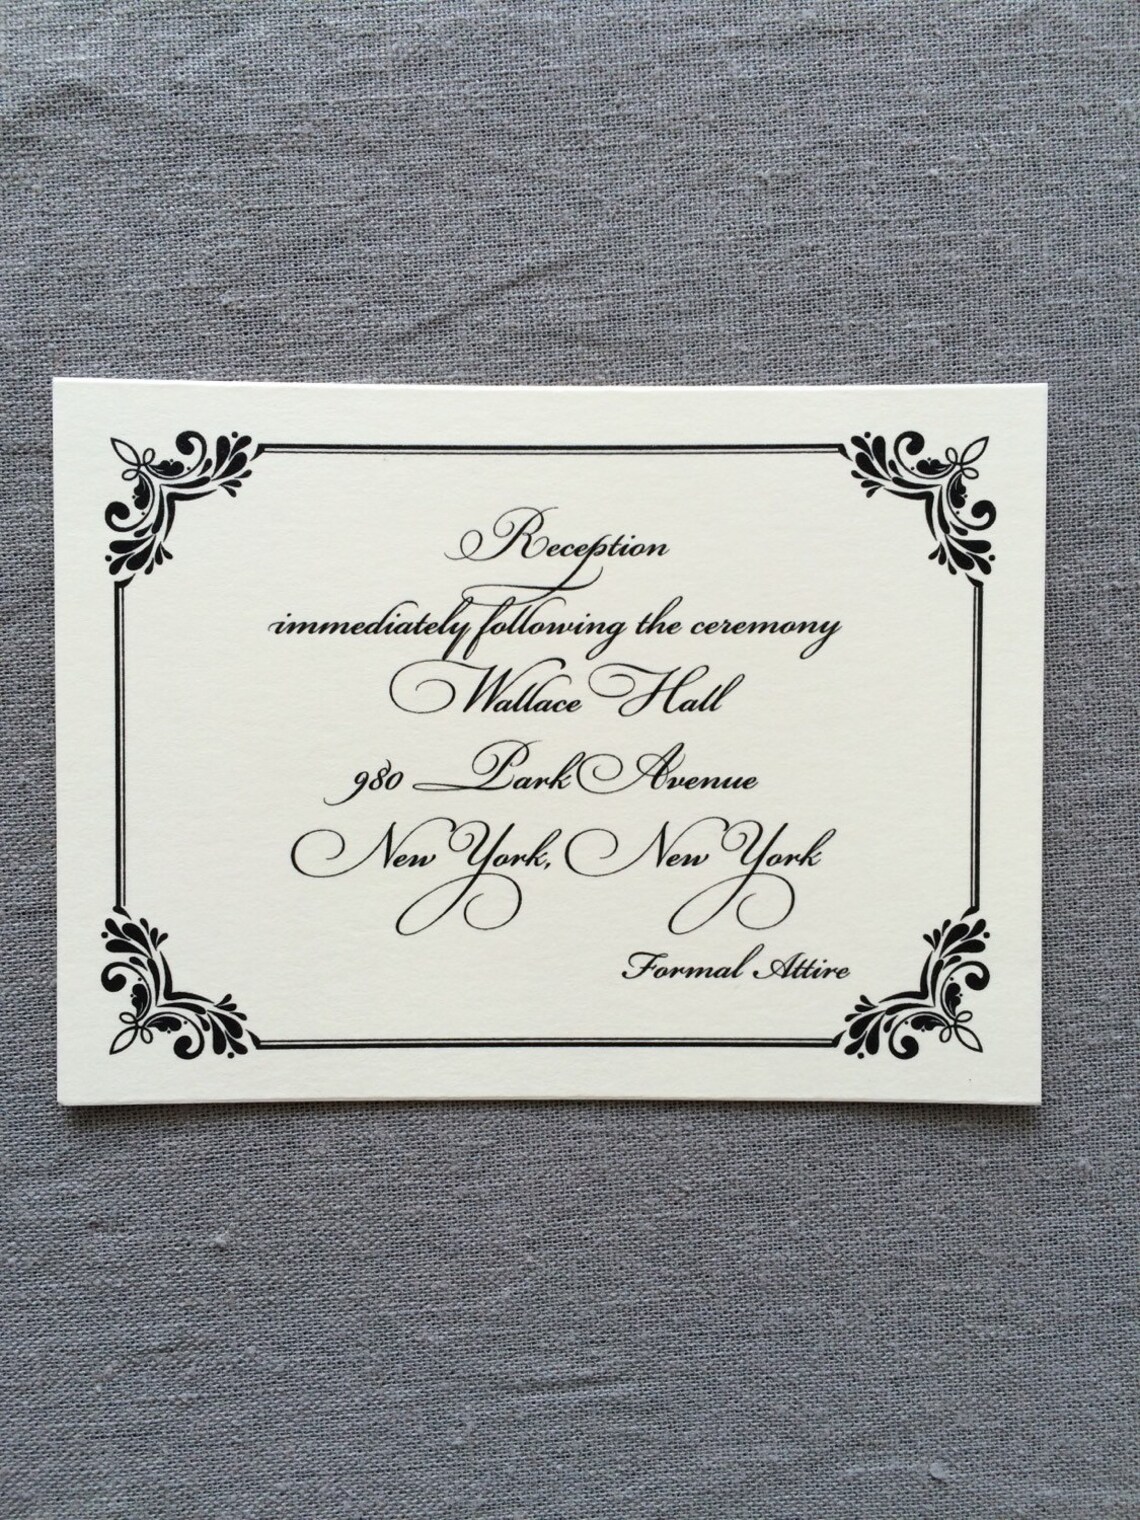 Reception
immediately following the ceremony
Wallace Hall
980 Park Avenue
New York, New York
Formal Attire